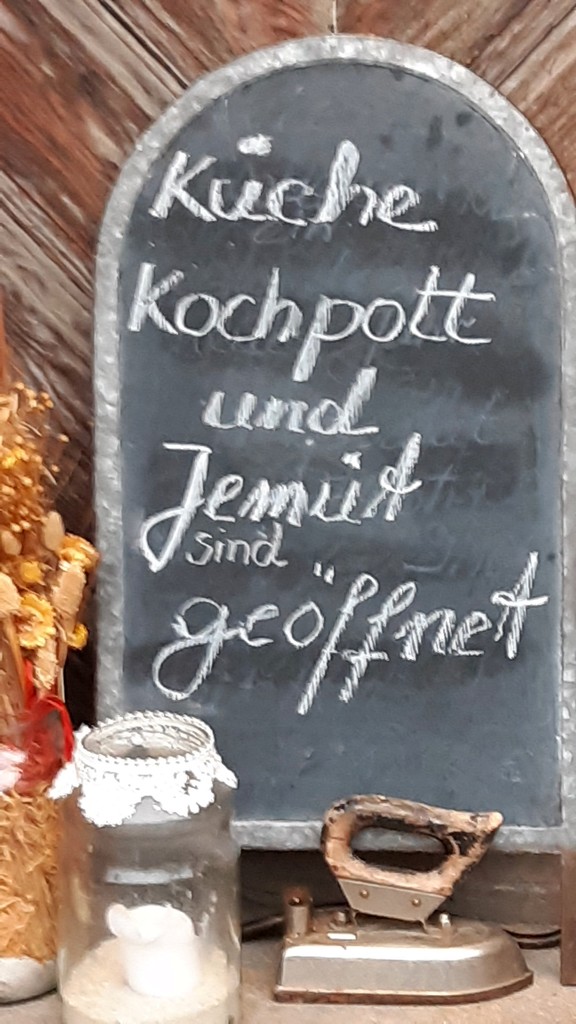 Küche
Kochpott
und
Jemüt
sind
geöffnet